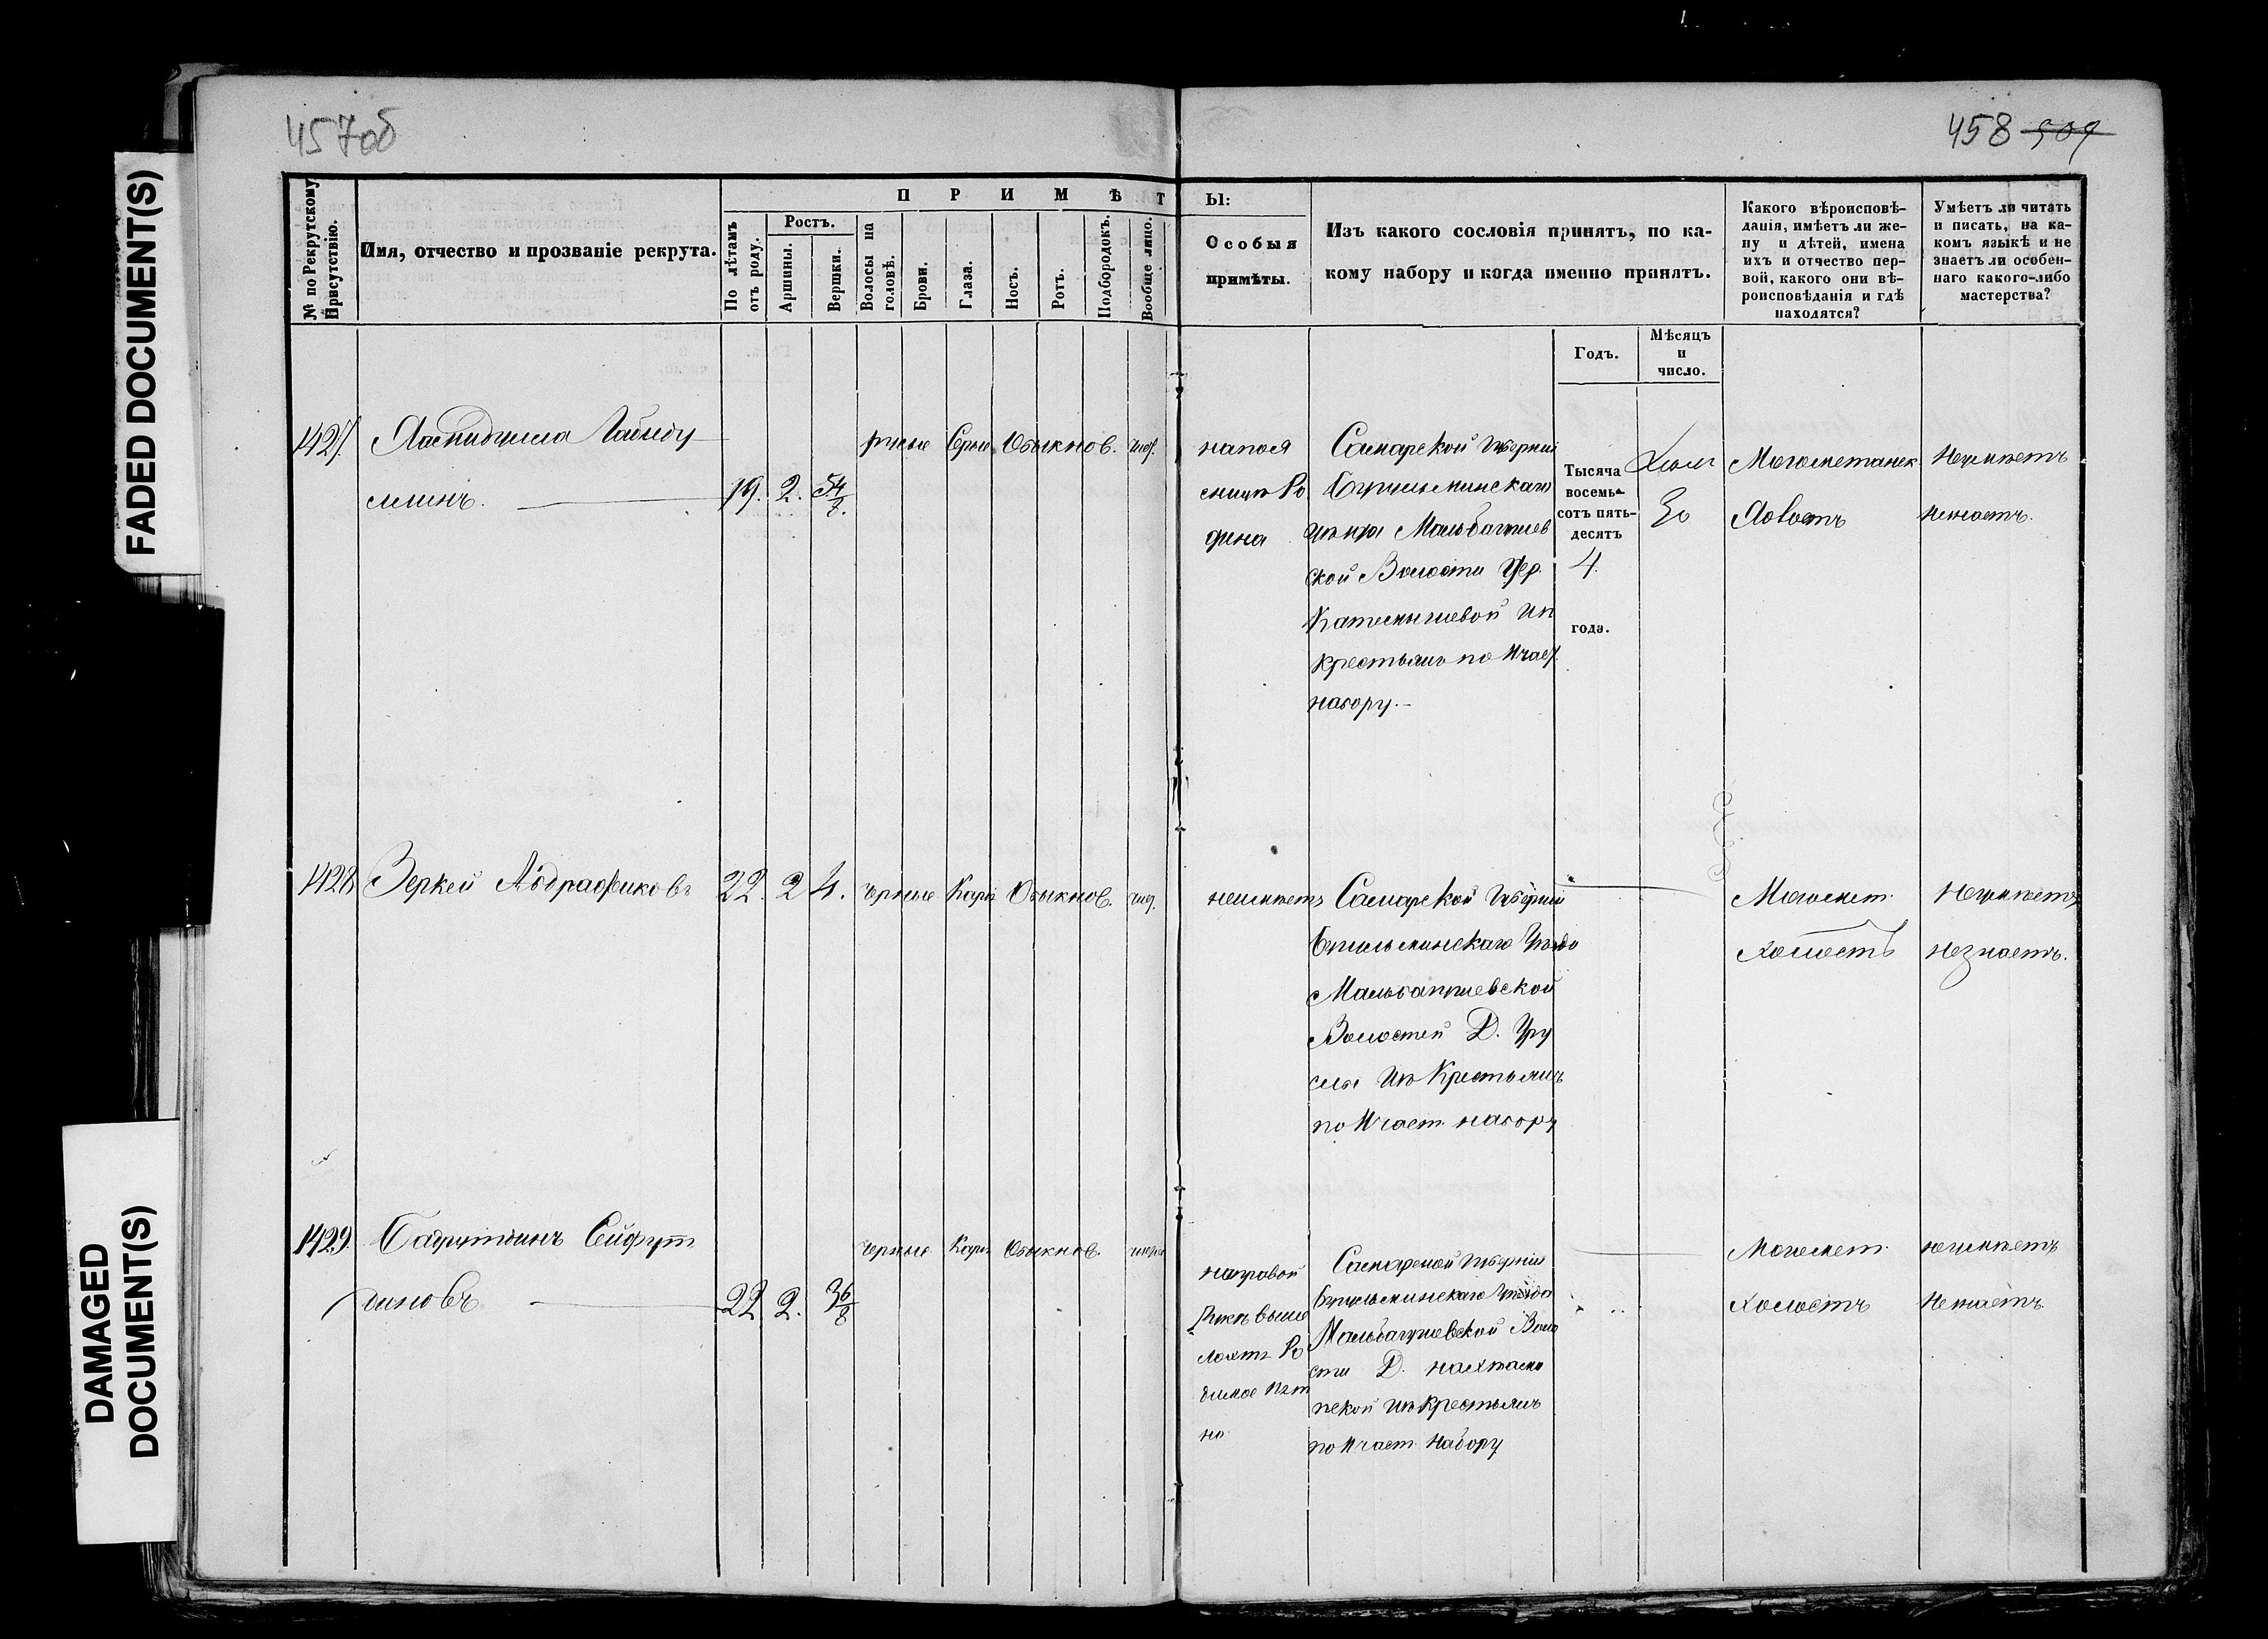 457об
458 509
FADED DOCUMENT(S)
DAMAGED
DOCUMENT(S)
№ по Рекрутскому Присутствію.
Имя, отчество и прозваніе рекрута.
П Р И М Ѣ Т Ы:
По лѣтамъ отъ роду.
Ростъ.
Аршины.
Вершки.
Волосы на головѣ.
Брови.
Глаза.
Носъ.
Ротъ.
Подбородокъ.
Вообще лицо.
Особыя
примѣты.
Изъ какого сословія принятъ, по ка-
кому набору и когда именно принятъ.
Какого вѣроисповѣ-
данія, имѣетъ ли же-
ну и дѣтей, имена
ихъ и отчество пер-
вой, какого они вѣ-
роисповѣданія и гдѣ
находятся?
Умѣетъ ли читать
и писать, на ка-
комъ языкѣ и не
знаетъ ли особен-
наго какого-либо
мастерства?
Годъ.
Мѣсяцъ
и
число.
1427.
19. 2. 5 4/8.
Обыкнов.
напоя
сницѣ Ро
дина
Самарской Губерніи
Бугульминскаго
ской Волости Дер.
крестьянъ по Ичас.
набору.
Тысяча
восемь-
сотъ пять-
десятъ
4.
года.
30
Могометанск.
Холостъ
Неумѣетъ
Незнаетъ.
1428 Зеркей Абдрафиковъ 22. 2 4. черные Каріе Обыкнов. чис.
неимѣетъ
Самарской Губерніи
Бугульминскаго Уѣзда
Мальбагушевской
Волостей Д. Уру
сы Изъ Крестьянъ
по Ичаст. набору
Могомет.
холостъ
Неумѣетъ
незнаетъ.
1429. Бадрутдинъ Сейфут
диновъ 22 2. 3 6/8
черные Каріе Обыкнов.
направой
Рукѣ выше
локтя Ро
димое пят
но
Самарской Губерніи
Бугульминскаго Уѣзда
Мальбагушевской Воло
сти Д.
Изъ крестьянъ
по Ичаст. Набору
Могомет.
холостъ
неумѣетъ
Незнаетъ.